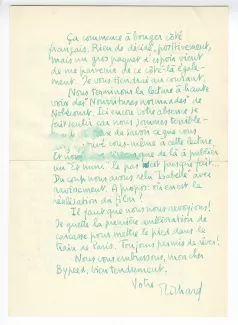 Ça commence à bouger côté
français. Rien de décisif, positivement,
mais un gros paquet d'espoir vient
de me parvenir de ce côté-là égale-
ment. Je vous tiendrai au courant.
Nous terminons la lecture à haute
voix des "Nourritures normandes" de
. Ici encore votre absence se
fait sentir car nous sommes terrible-
de savoir ce que vous
vous-même à cette lecture.
Et nous de là à publier
un "Et nunc" le pas est presque fait...
Du coup nous avons relu "Isabelle" avec
ravissement. A propos: où en est la
réalisation du film?
Il faut que nous nous revoyions!
Je guette la première amélioration de
carcasse pour mettre le pied dans le
train de Paris. Toujours permis de rêver!
Nous vous embrassons, mon cher
, bien tendrement.
Votre Richard